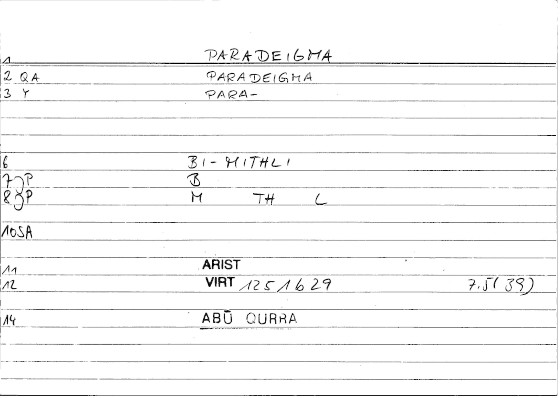 1 PARADEIGMA
2 QA PARADEIGMA
3 Y PARA-
6 BI-MITHLI
7 P B
8 P M TH L
10SA
11 ARIST
12 VIRT 1251629 7.5(39)
14 ABŪ QURRA